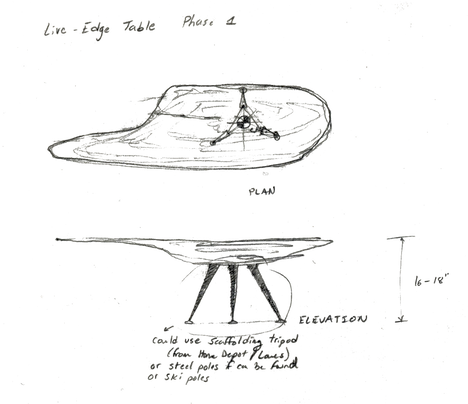 Live-Edge Table Phase 1
PLAN
16-18"
ELEVATION
could use scaffolding tripod
(from Home Depot / Lowes)
or steel poles if can be found
or ski poles